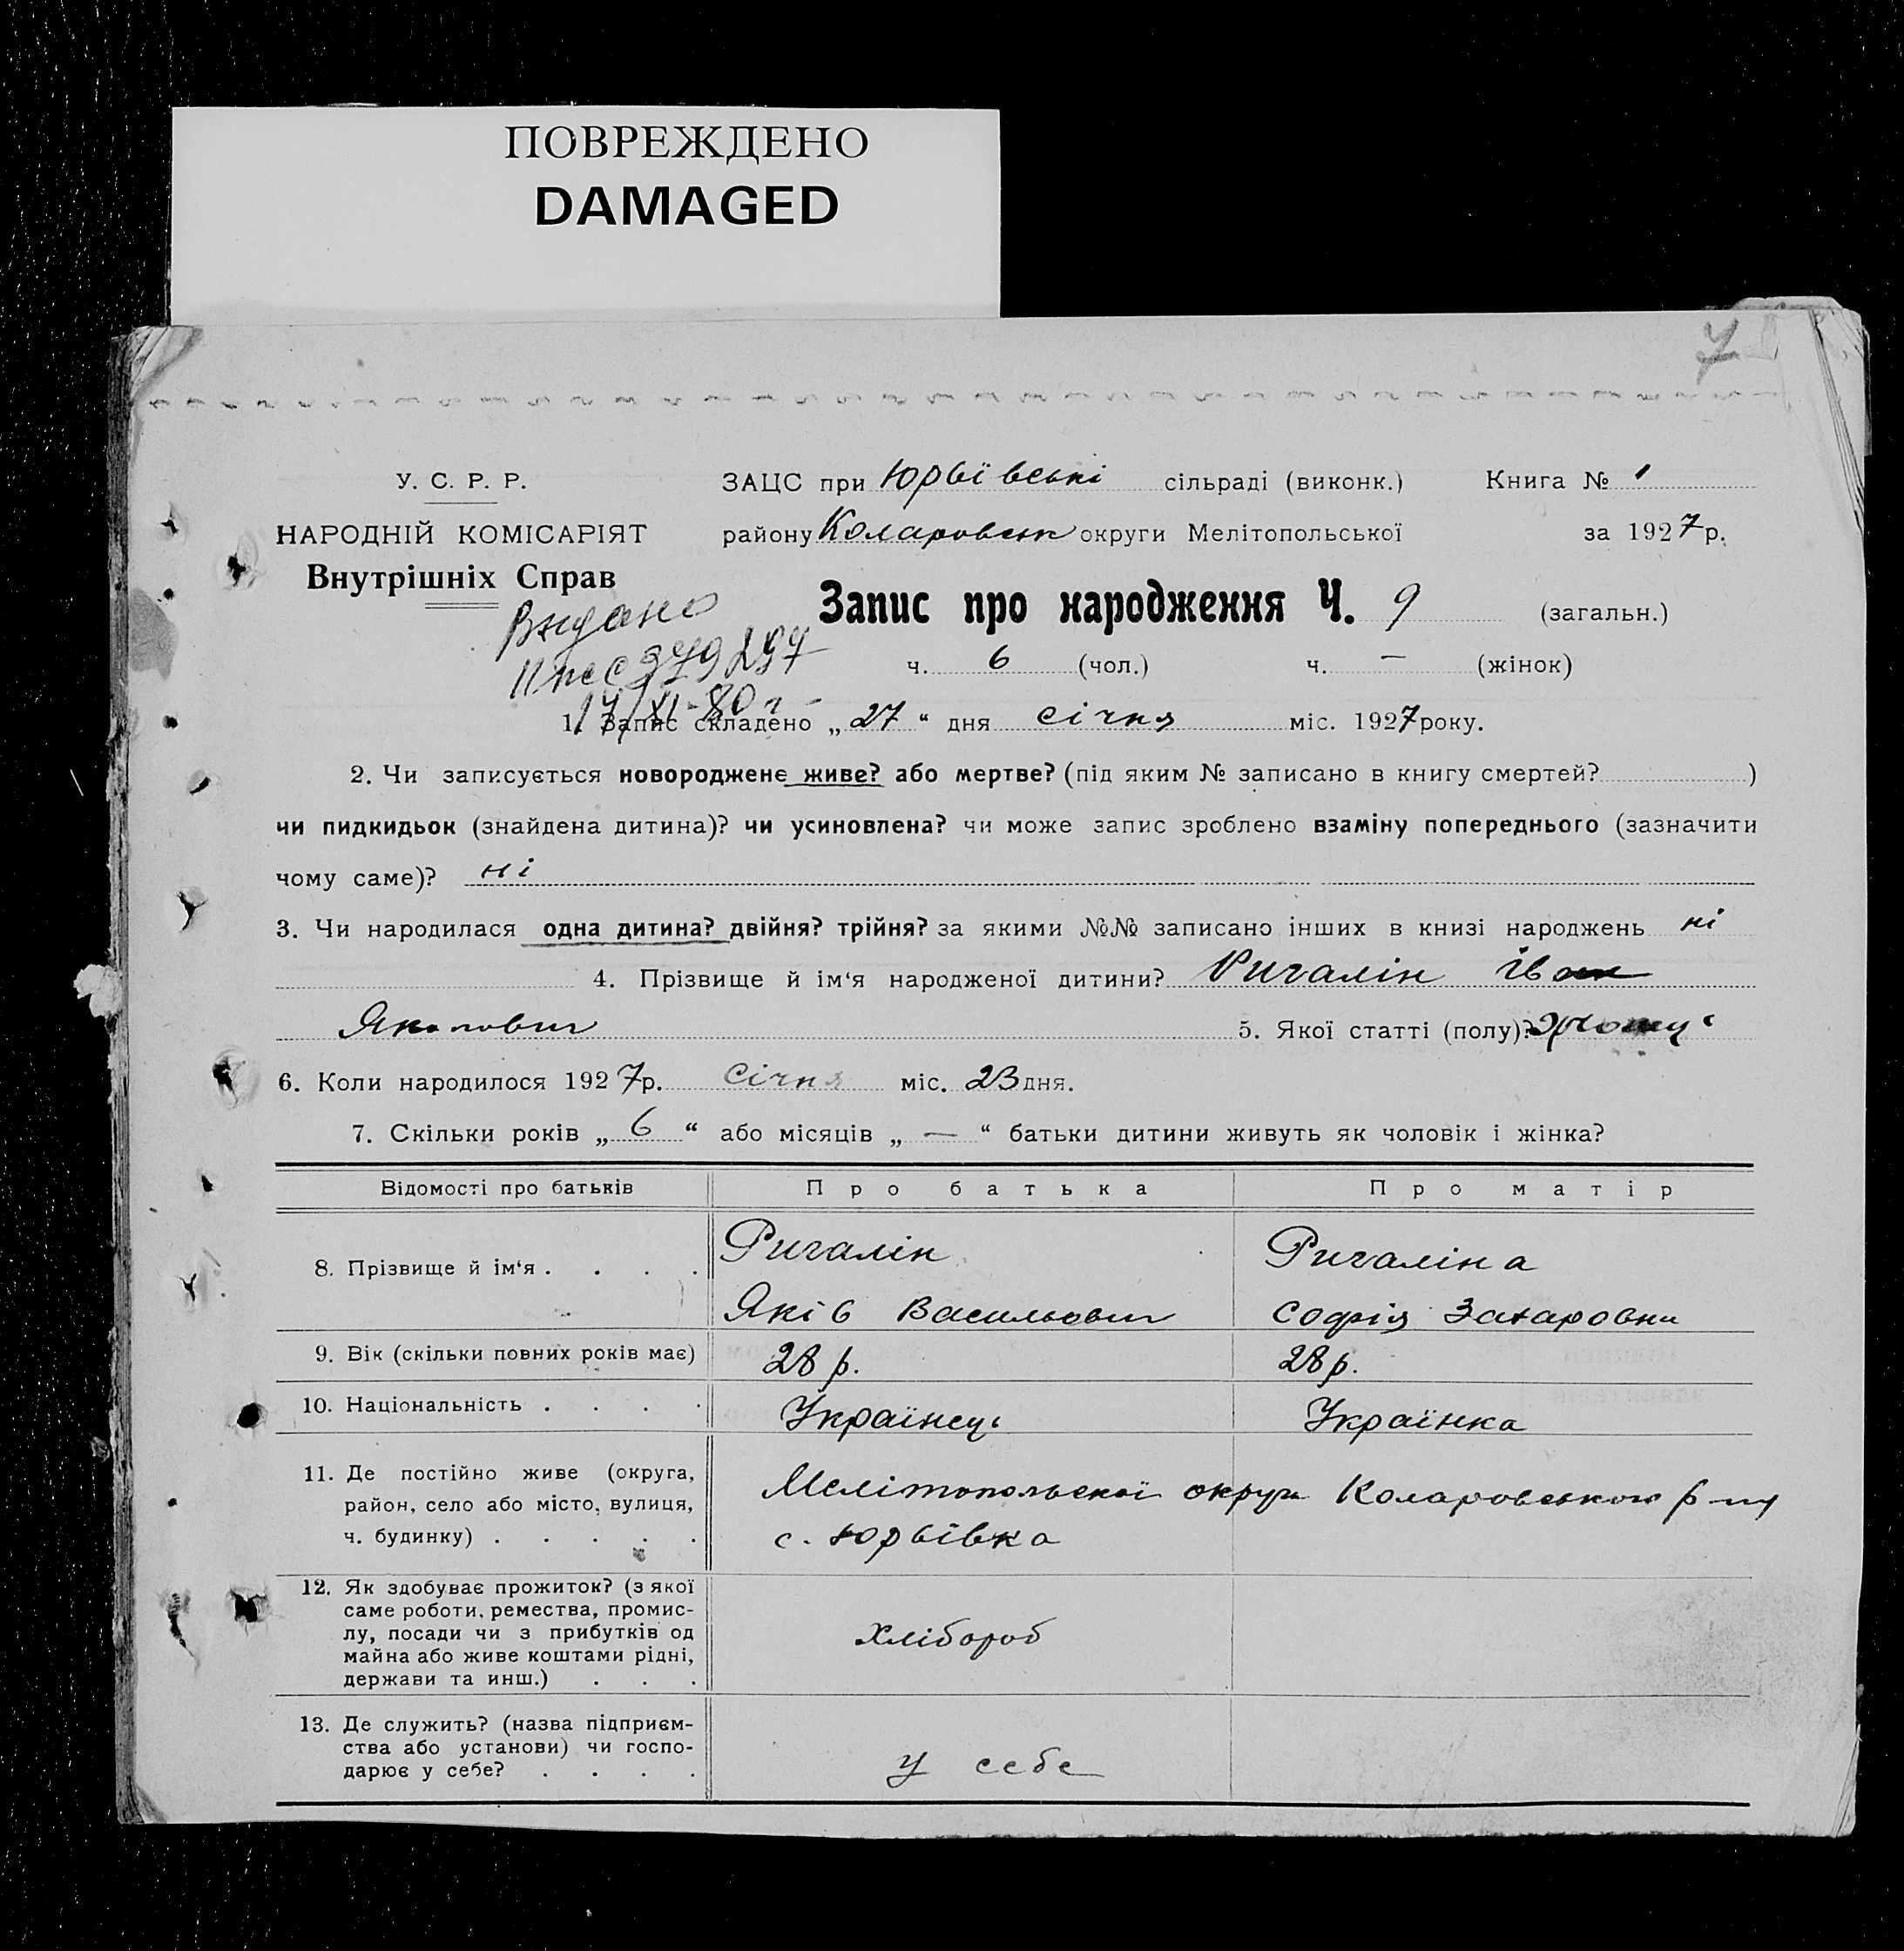 ПОВРЕЖДЕНО
DAMAGED
7
У. С. Р. Р.
НАРОДНІЙ КОМІСАРІЯТ
Внутрішніх Справ
ЗАЦС при Юрьївські сільраді (виконк.) Книга № 1
району Коларовськ округи Мелітопольської за 1927 р.
Видано
379297
17/XI-80 г
Запис про народження Ч. 9 (загальн.)
ч. 6 (чол.) ч. — (жінок)
1. Запис складено „27“ дня січня міс. 1927 року.
2. Чи записується новороджене живе? або мертве? (під яким № записано в книгу смертей? )
чи пидкидьок (знайдена дитина)? чи усиновлена? чи може запис зроблено взаміну попереднього (зазначити
чому саме)? ні
3. Чи народилася одна дитина? двійня? трійня? за якими №№ записано інших в книзі народжень ні
4. Прізвище й ім‘я народженої дитини? Ригалін Іван
Яковович 5. Якої статті (полу)?
6. Коли народилося 1927 р. Січня міс. 23 дня.
7. Скільки років „6“ або місяців „—“ батьки дитини живуть як чоловік і жінка?
Відомості про батьків Про батька Про матір
8. Прізвище й ім‘я . . . . Ригалін Ригаліна
Яків Васильович Софія Захаровни
9. Вік (скільки повних років має) 28 р. 28 р.
10. Національність . . . . Українець Українка
11. Де постійно живе (округа,
район, село або місто, вулиця,
ч. будинку) . . . . .
Мелітопольської округи Коларовського р-ну
с. Юрьївка
12. Як здобуває прожиток? (з якої
саме роботи, ремества, промис-
лу, посади чи з прибутків од
майна або живе коштами рідні,
держави та инш.) . . .
Хлібороб
13. Де служить? (назва підприєм-
ства або установи) чи госпо-
дарює у себе? . . . .
у себе